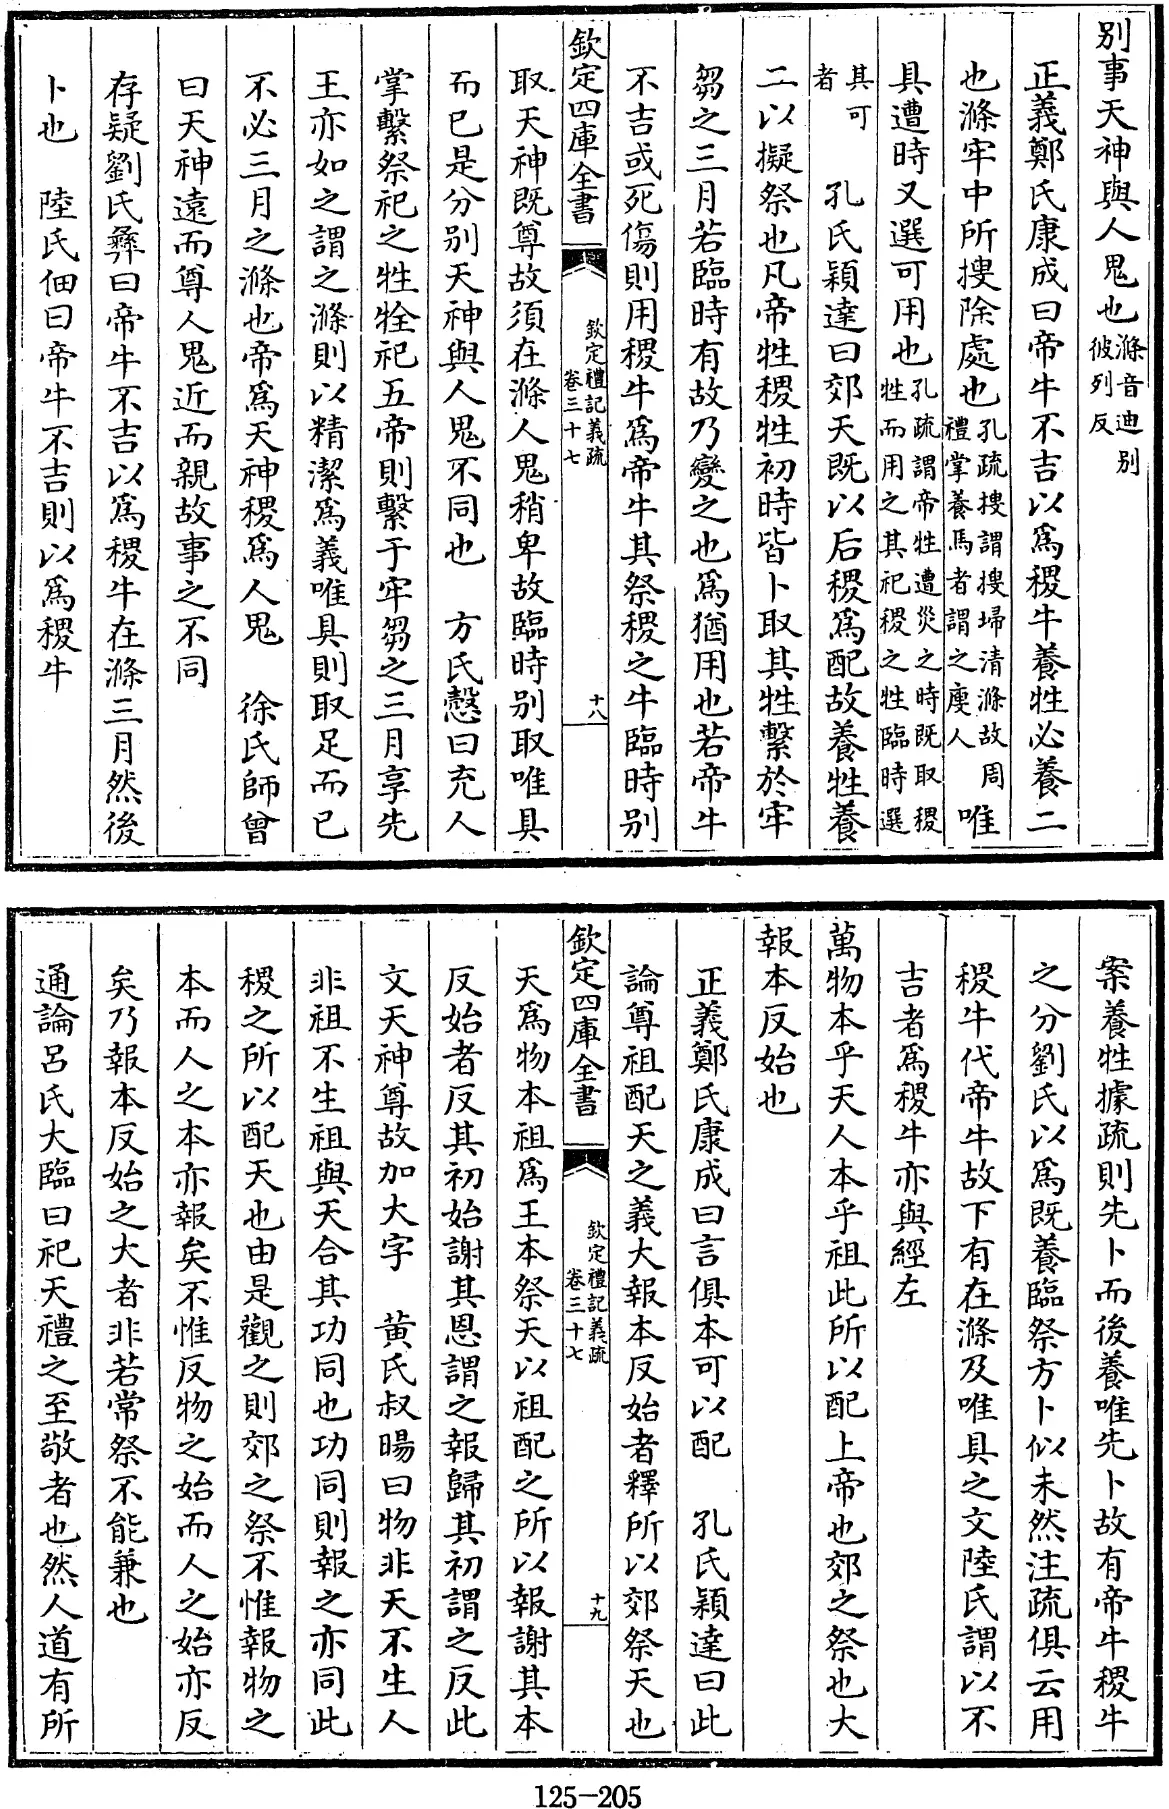 别事天神與人鬼也滌音迪别
彼列反
正義鄭氏康成曰帝牛不吉以為稷牛養牲必養二
也滌牢中所搜除處也孔疏搜謂搜埽清滌故周
禮掌養馬者謂之廋人唯
具遭時又選可用也孔疏謂帝牲遭災之時既取稷
牲而用之其祀稷之牲臨時選
其可
者　孔氏穎達曰郊天既以后稷為配故養牲養
二以擬祭也凡帝牲稷牲初時皆卜取其牲繫於牢
芻之三月若臨時有故乃變之也為猶用也若帝牛
不吉或死傷則用稷牛為帝牛其祭稷之牛臨時别
欽定四庫全書
欽定禮記義疏
卷三十七
十八
取天神既尊故須在滌人鬼稍卑故臨時别取唯具
而已是分别天神與人鬼不同也　方氏慤曰充人
掌繫祭祀之牲牷祀五帝則繫于牢芻之三月享先
王亦如之謂之滌則以精潔為義唯具則取足而已
不必三月之滌也帝為天神稷為人鬼　徐氏師曾
曰天神遠而尊人鬼近而親故事之不同
存疑劉氏彝曰帝牛不吉以為稷牛在滌三月然後
卜也　陸氏佃曰帝牛不吉則以為稷牛
案養牲據疏則先卜而後養唯先卜故有帝牛稷牛
之分劉氏以為既養臨祭方卜似未然注疏俱云用
稷牛代帝牛故下有在滌及唯具之文陸氏謂以不
吉者為稷牛亦與經左
萬物本乎天人本乎祖此所以配上帝也郊之祭也大
報本反始也
正義鄭氏康成曰言俱本可以配　孔氏穎達曰此
論尊祖配天之義大報本反始者釋所以郊祭天也
欽定四庫全書
欽定禮記義疏
卷三十七
十九
天為物本祖為王本祭天以祖配之所以報謝其本
反始者反其初始謝其恩謂之報歸其初謂之反此
文天神尊故加大字　黄氏叔暘曰物非天不生人
非祖不生祖與天合其功同也功同則報之亦同此
稷之所以配天也由是觀之則郊之祭不惟報物之
本而人之本亦報矣不惟反物之始而人之始亦反
矣乃報本反始之大者非若常祭不能兼也
通論呂氏大臨曰祀天禮之至敬者也然人道有所
125-205